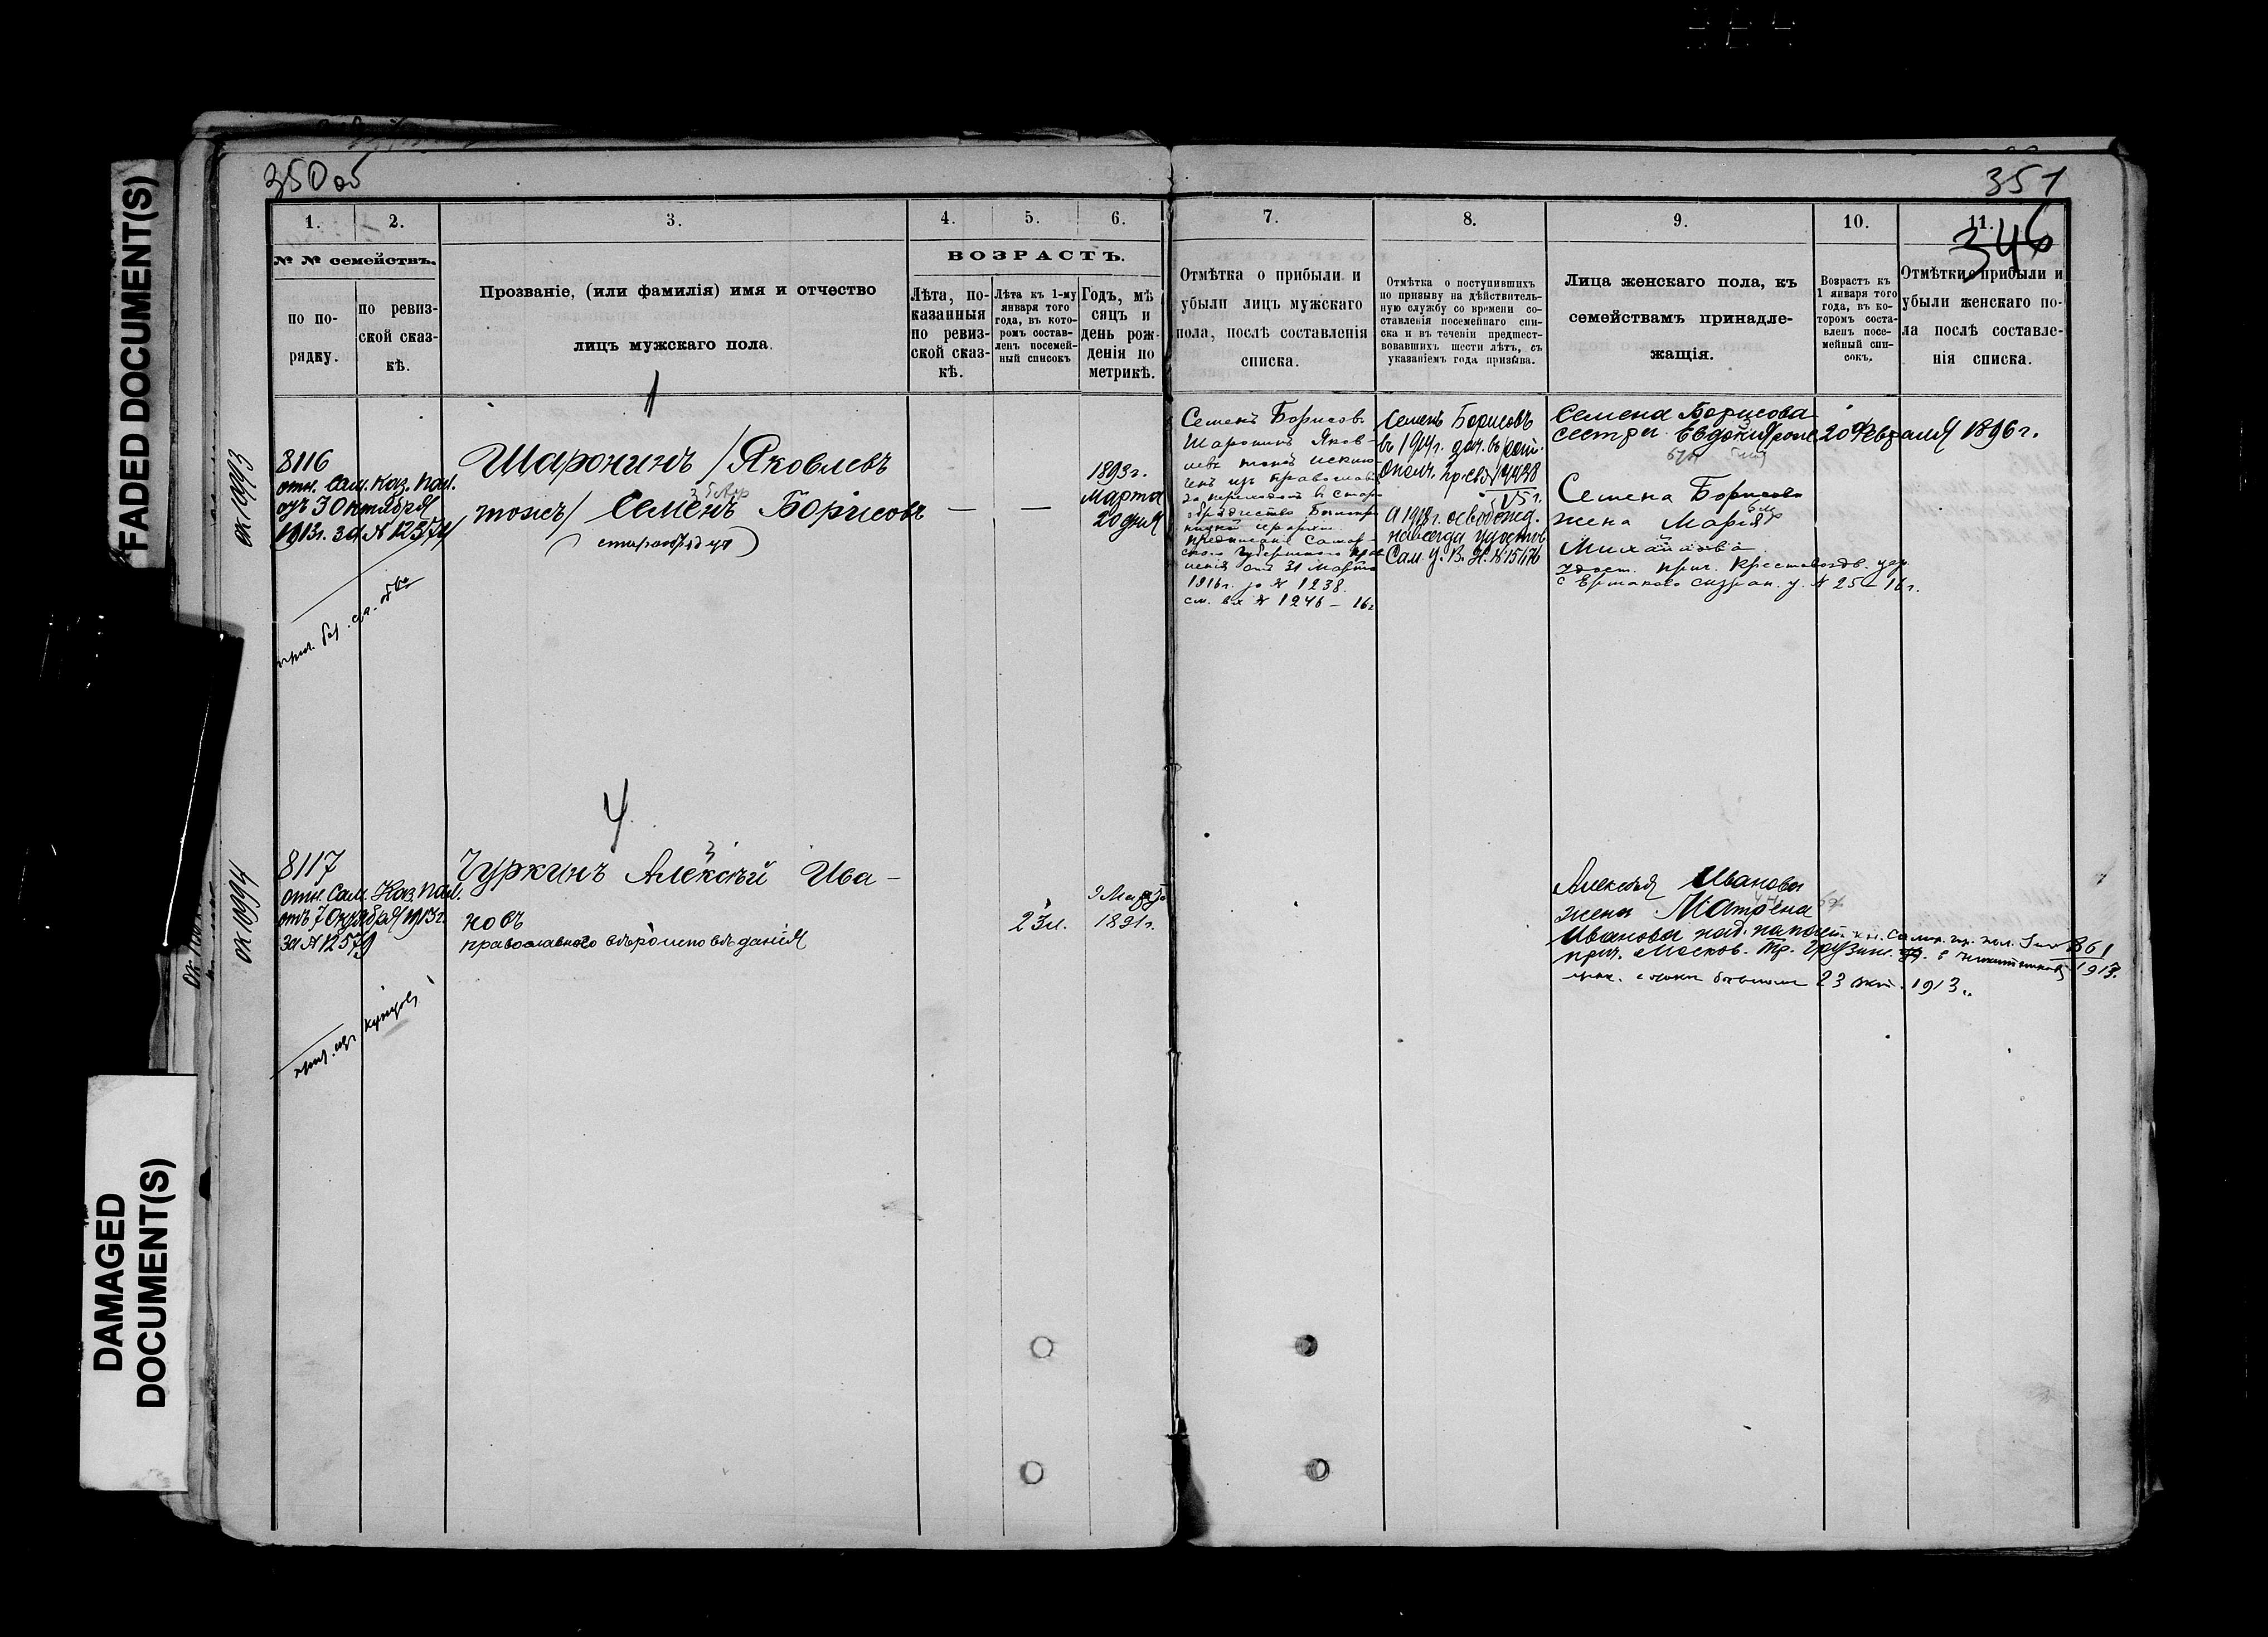 350 об
351
346
FADED DOCUMENT(S)
DAMAGED
DOCUMENT(S)
1.
2.
3.
4.
5.
6.
7.
8.
9.
10.
11.
№ № семействъ.
по по-
рядку.
по ревиз-
ской сказ-
кѣ.
Прозваніе, (или фамилія) имя и отчество
лицъ мужскаго пола.
ВОЗРАСТЪ.
Лѣта, по-
казанныя
по ревиз-
ской сказ-
кѣ.
Лѣта къ 1-му
января того
года, въ кото-
ромъ состав-
ленъ посемей-
ный списокъ
Годъ, мѣ
сяцъ и
день рож-
денія по
метрикѣ.
Отмѣтка о прибыли и
убыли лицъ мужскаго
пола, послѣ составленія
списка.
Отмѣтка о поступившихъ
по призыву на дѣйствитель-
ную службу со времени со-
ставленія посемейнаго спи-
ска и въ теченіи предшест-
вовавшихъ шести лѣтъ, съ
указаніемъ года призыва.
Лица женскаго пола, къ
семействамъ принадле-
жащія.
Возрастъ къ
1 января того
года, въ ко-
торомъ соста-
вленъ посе-
мейный спи-
сокъ.
Отмѣтки о прибыли и
убыли женскаго по-
ла послѣ составле-
нія списка.
1
ок 1093
8116
отн. Сам. Каз. Пал.
отъ 3 Октября
1913г. за № 12574
Шаронинъ /Яковлевъ
тожъ/ Семенъ Борисовъ
(старообрядца)
— —
1893г.
Марта
20 дня
Семенъ Борисовъ
Шаронинъ Яков-
левъ тожъ исклю-
ченъ изъ православія
за переходомъ въ старо-
обрядчество
іерархіи.
предписаніе Самар-
скаго Губернскаго Прав
ленія отъ 31 Марта
1916г. за № 1238.
см. вх № 1246 — 16г
Семенъ Борисовъ
въ 1914г. зач. въ рат.
ополч.
а 1918г. освобожд.
навсегда удостов
Сам. У. В. Н. № 15476
Семена Борисова
сестра Евдокія роже 20 Февраля 1896г.
Семена Борисова
жена Марія
Михайлова
удост. прич. Крестовоздв. цер.
с Ермаково сызран. у. № 25 — 16г.
4
ок 1094
8117
отн. Сам. Каз. Пал.
отъ 7 Октября 1913г.
за № 12579
Чуркинъ Алексѣй Ива-
новъ
православнаго вѣроисповѣданія
23л.
9 Марта
1891г.
Алексѣя Иванова
жена Матрена
Иванова
прич. Москов. Тр. Грузинс. в Никитникахъ
861
1913.
23 окт. 1913г.